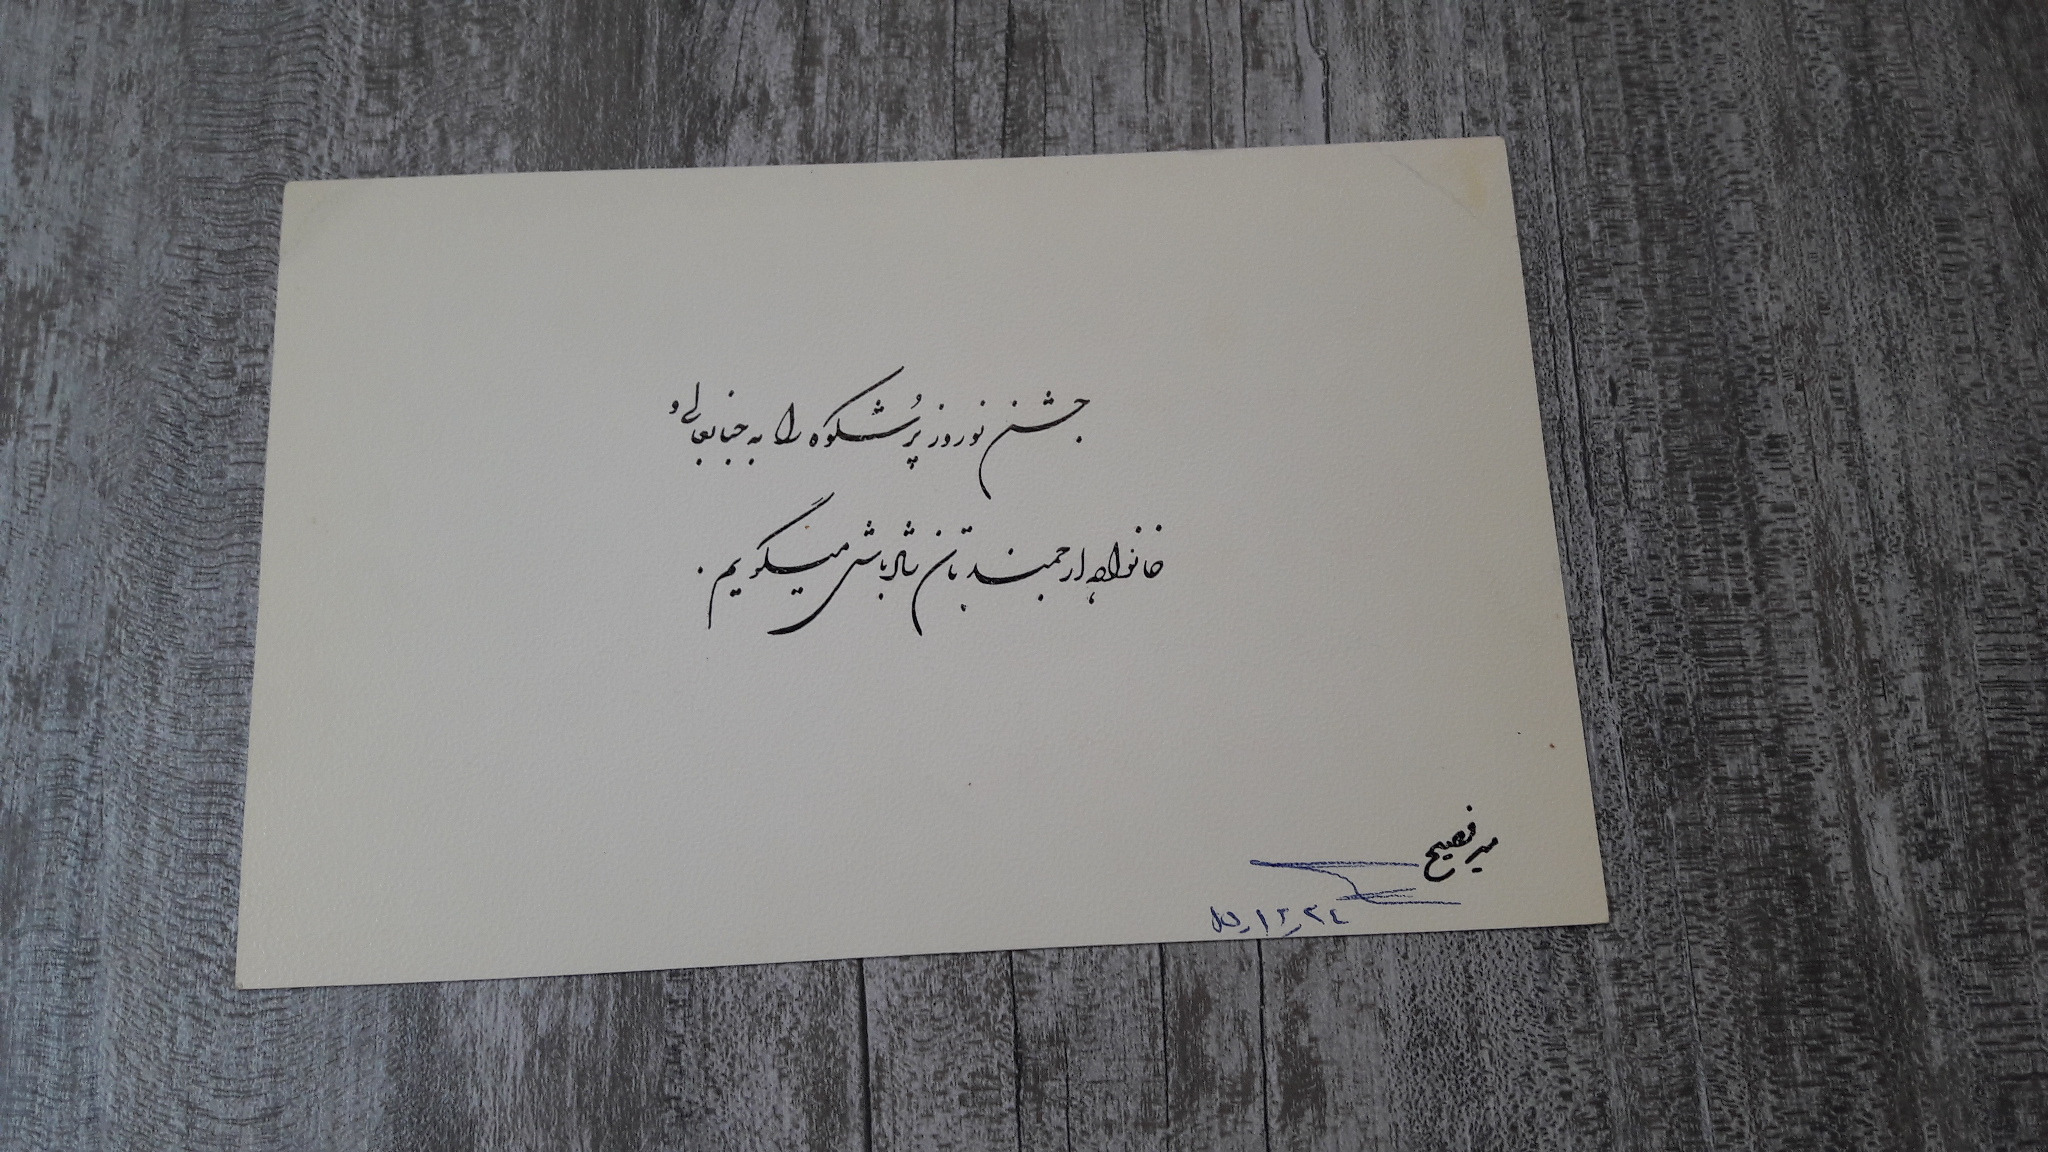 جشن نوروز پُرشکوه را به جنابعالی و
خانواده ارجمندتان شادباش میگویم.
میرفصیح
۲۴ر۱۲ر۵۱